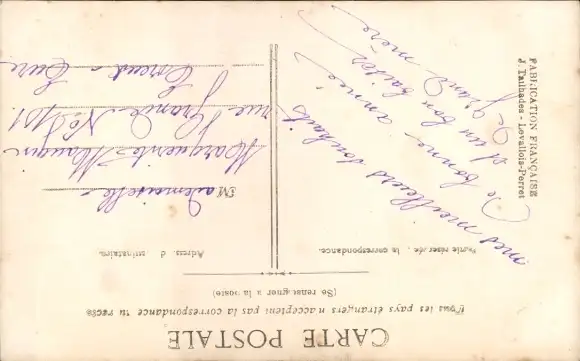 CARTE POSTALE
Tous les pays étrangers n'acceptent pas la correspondance au recto
(Se renseigner à la poste)
Partie réservée à la correspondance.
Adresse du destinataire.
mes meilleurs souhaits
De bonne année
et un bon baiser
Grand mère
M ademoiselle
Marguerite Mauger
rue Grande No
Breteuil Eure
FABRICATION FRANÇAISE
J. Tailhades - Levallois-Perret